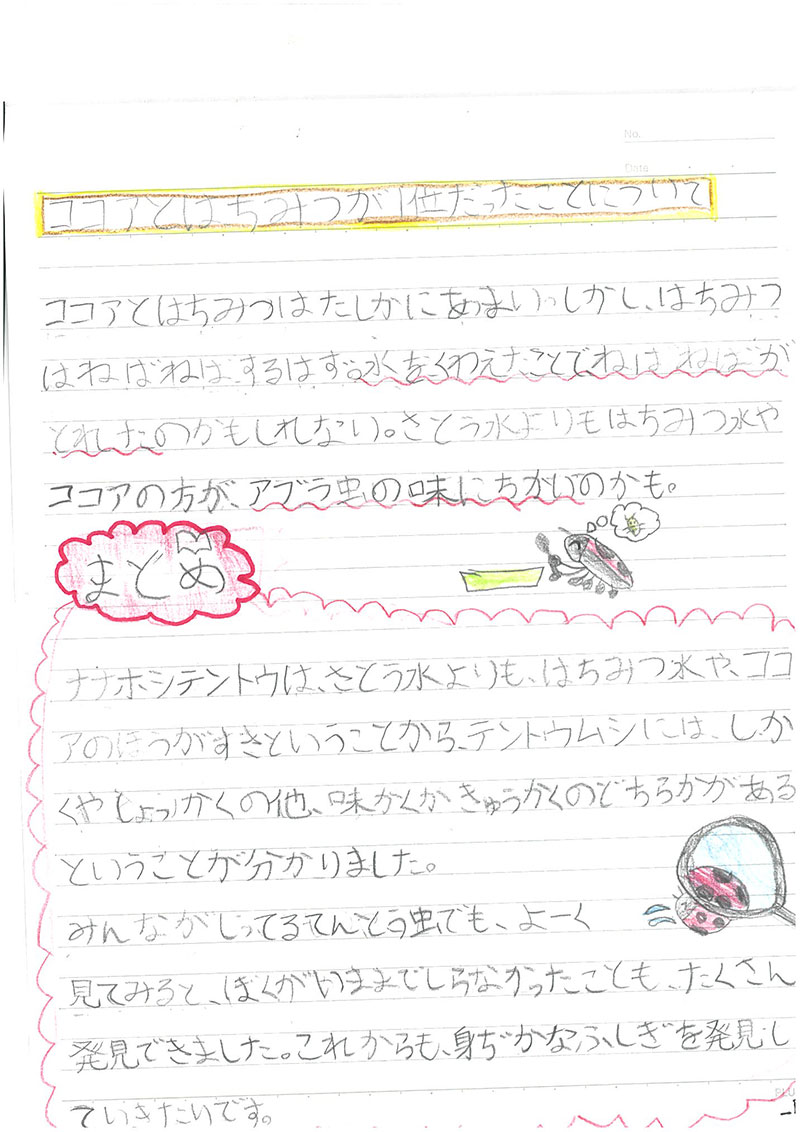 No.
Date
ココアとはちみつが1位だったことについて
ココアとはちみつはたしかにあまい。しかし、はちみつ
はねばねばするはず。水をくわえたことでねばねばが
とれしたのかもしれない。さとう水よりもはちみつ水や
ココアの方が、アブラ虫の味にちかいのかも。
まとめ
ナナホシテントウは、さとう水よりも、はちみつ水や、ココ
アのほうがすきということから、テントウムシには、しか
くやしょっかくの他、味かくかきゅうかくのどちらかがある
ということが分かりました。
みんながしってるてんとう虫でも、よーく
見てみると、ぼくがいままでしらなかったことも、たくさん
発見できました。これからも、身ぢかなふしぎを発見し
ていきたいです。